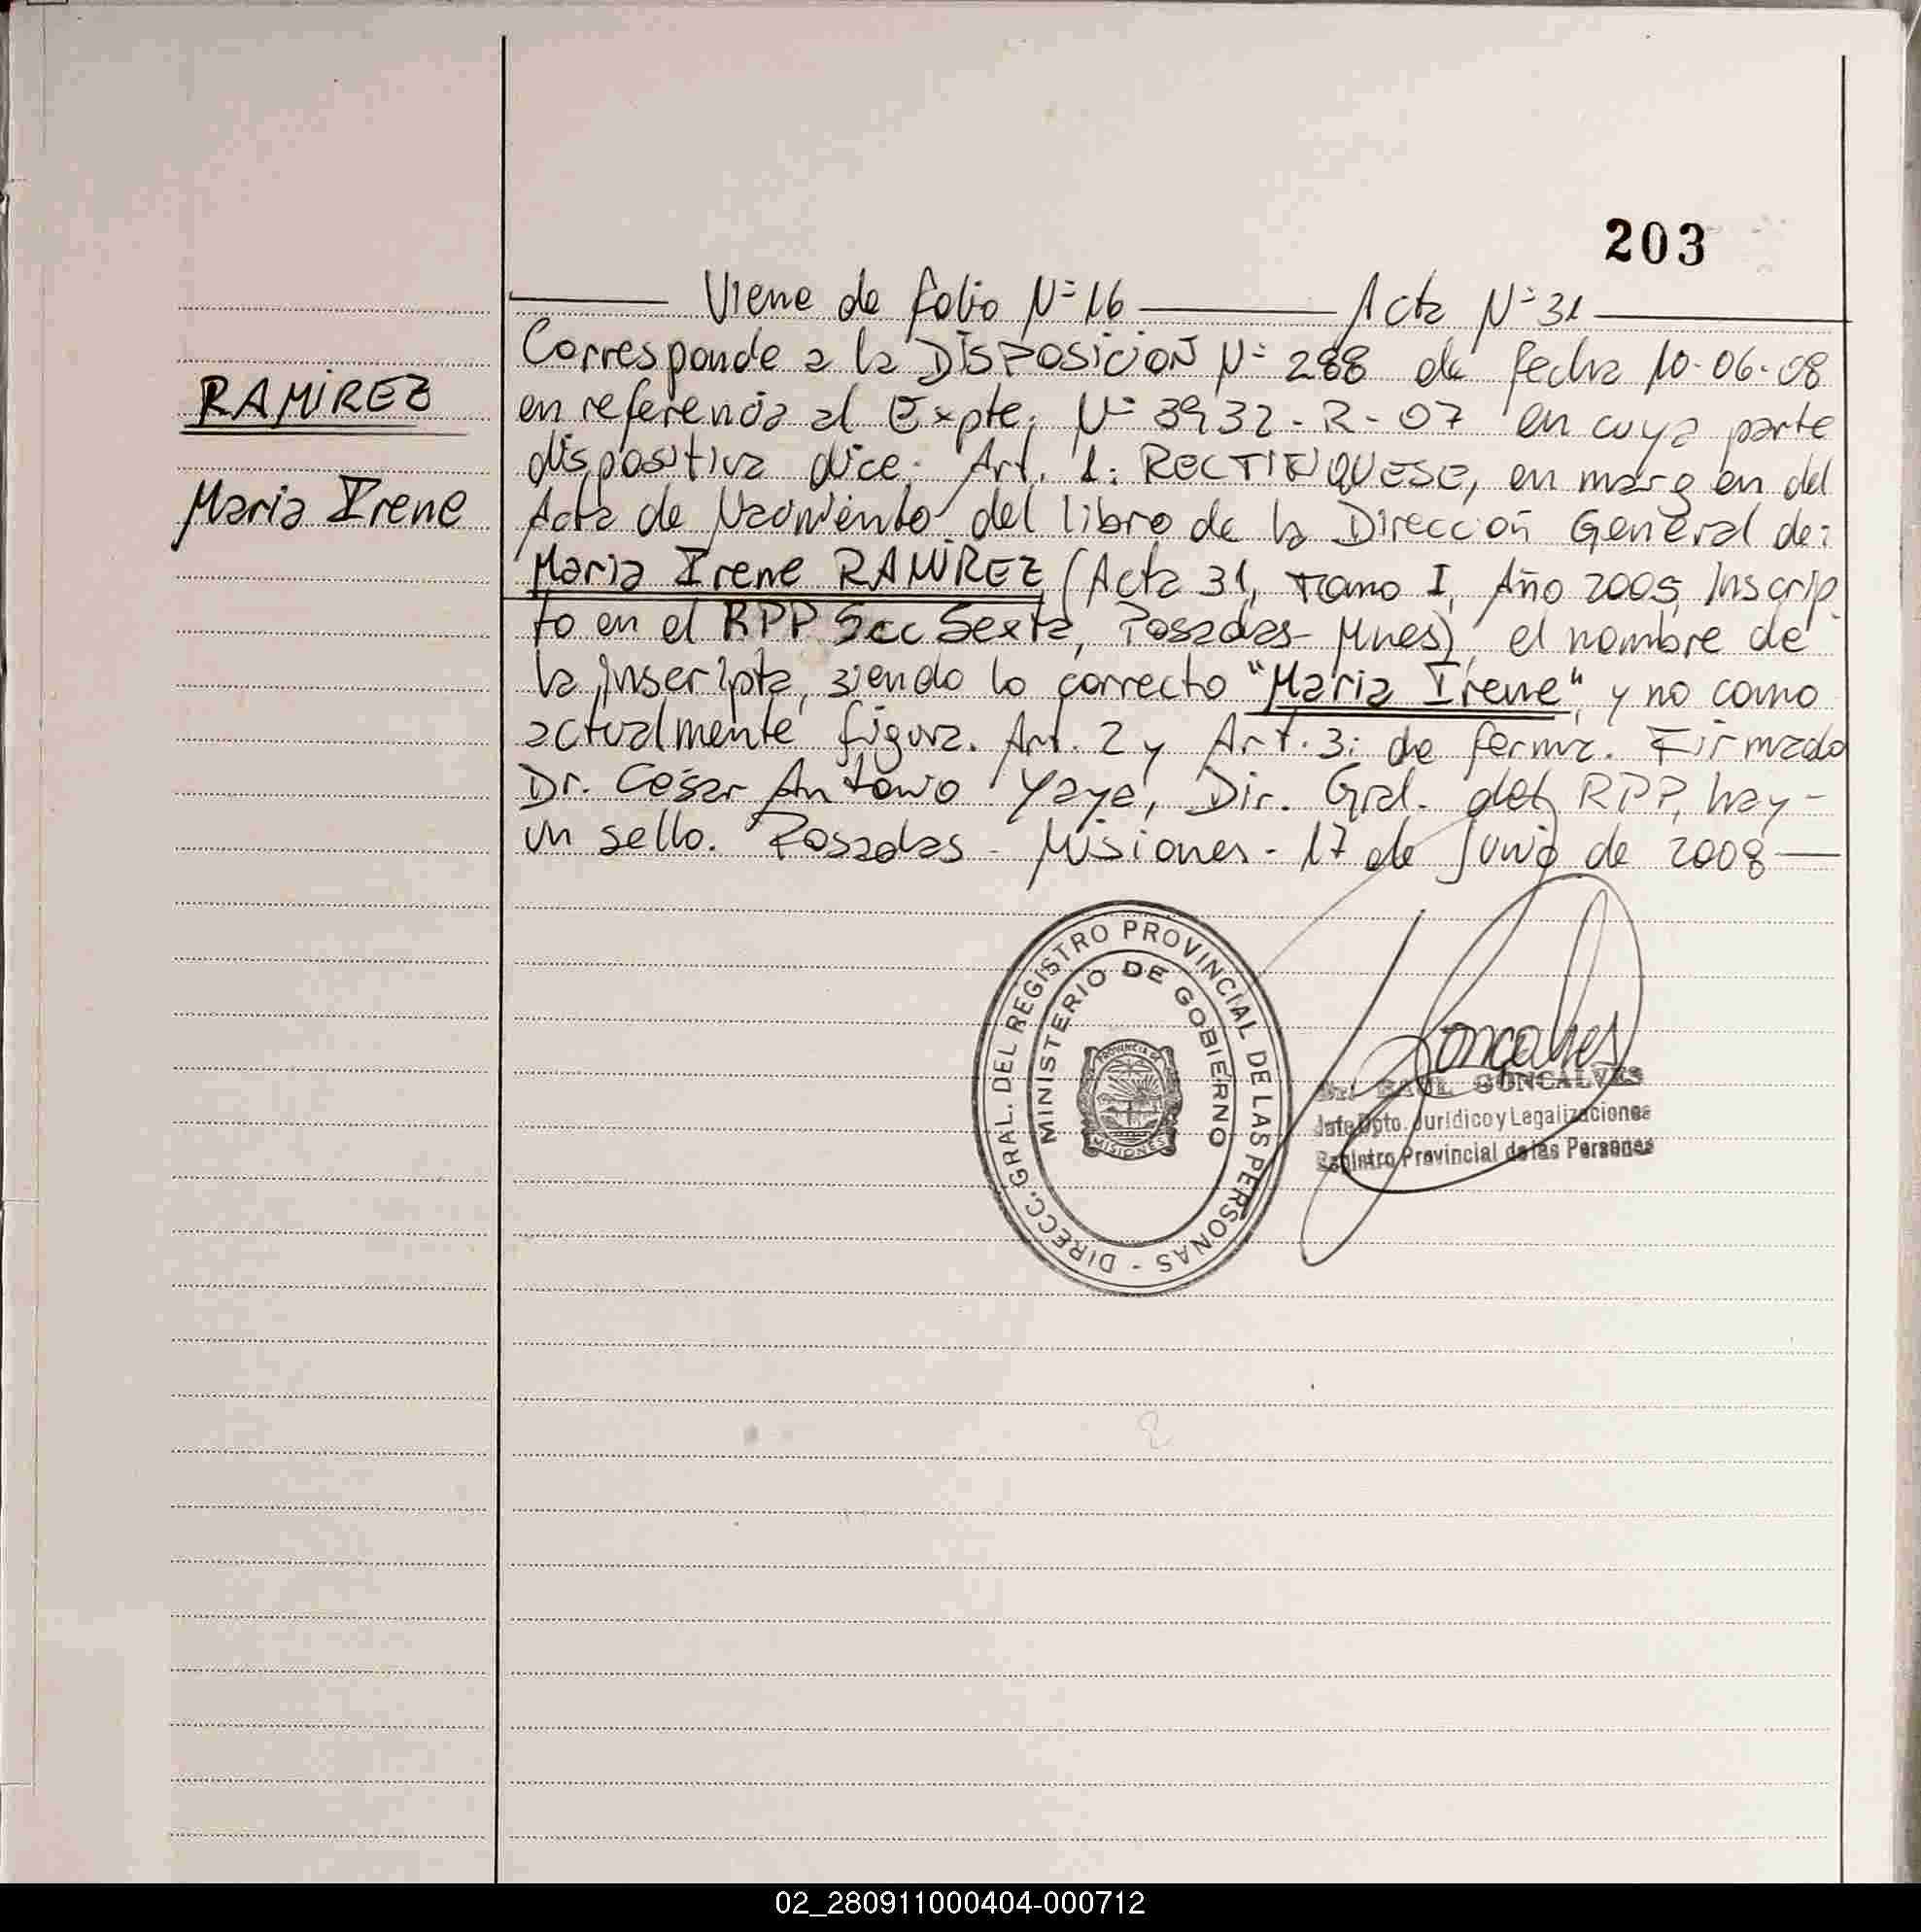 203
Viene de folio N° 16 Acta N° 31
Corresponde a la DISPOSICION N° 288 de fecha 10-06-08
RAMIREZ
en referencia al Expte. N° 3932-R-07 en cuya parte
dispositiva dice: Art. 1: RECTIFIQUESE, en margen del
Maria Irene
Acta de Nacimiento del libro de la Dirección General de:
Maria Irene RAMIREZ (Acta 31, Tomo I, Año 2005, Inscrip
to en el RPP Secc Sexta, Posadas-Mnes), el nombre de
la inscripta, siendo lo correcto "Maria Irene", y no como
actualmente figura. Art. 2 y Art. 3: de forma. Firmado
Dr. César Antonio Yaya, Dir. Gral. del RPP, hay-
un sello. Posadas - Misiones - 17 de Junio de 2008
DIRECC. GRAL. DEL REGISTRO PROVINCIAL DE LAS PERSONAS -
MINISTERIO DE GOBIERNO
PROVINCIA DE
MISIONES
Goncalves
Dr. RAUL GONCALVES
Jefe Dpto. Jurídico y Legalizaciones
Registro Provincial de las Personas
02_280911000404-000712